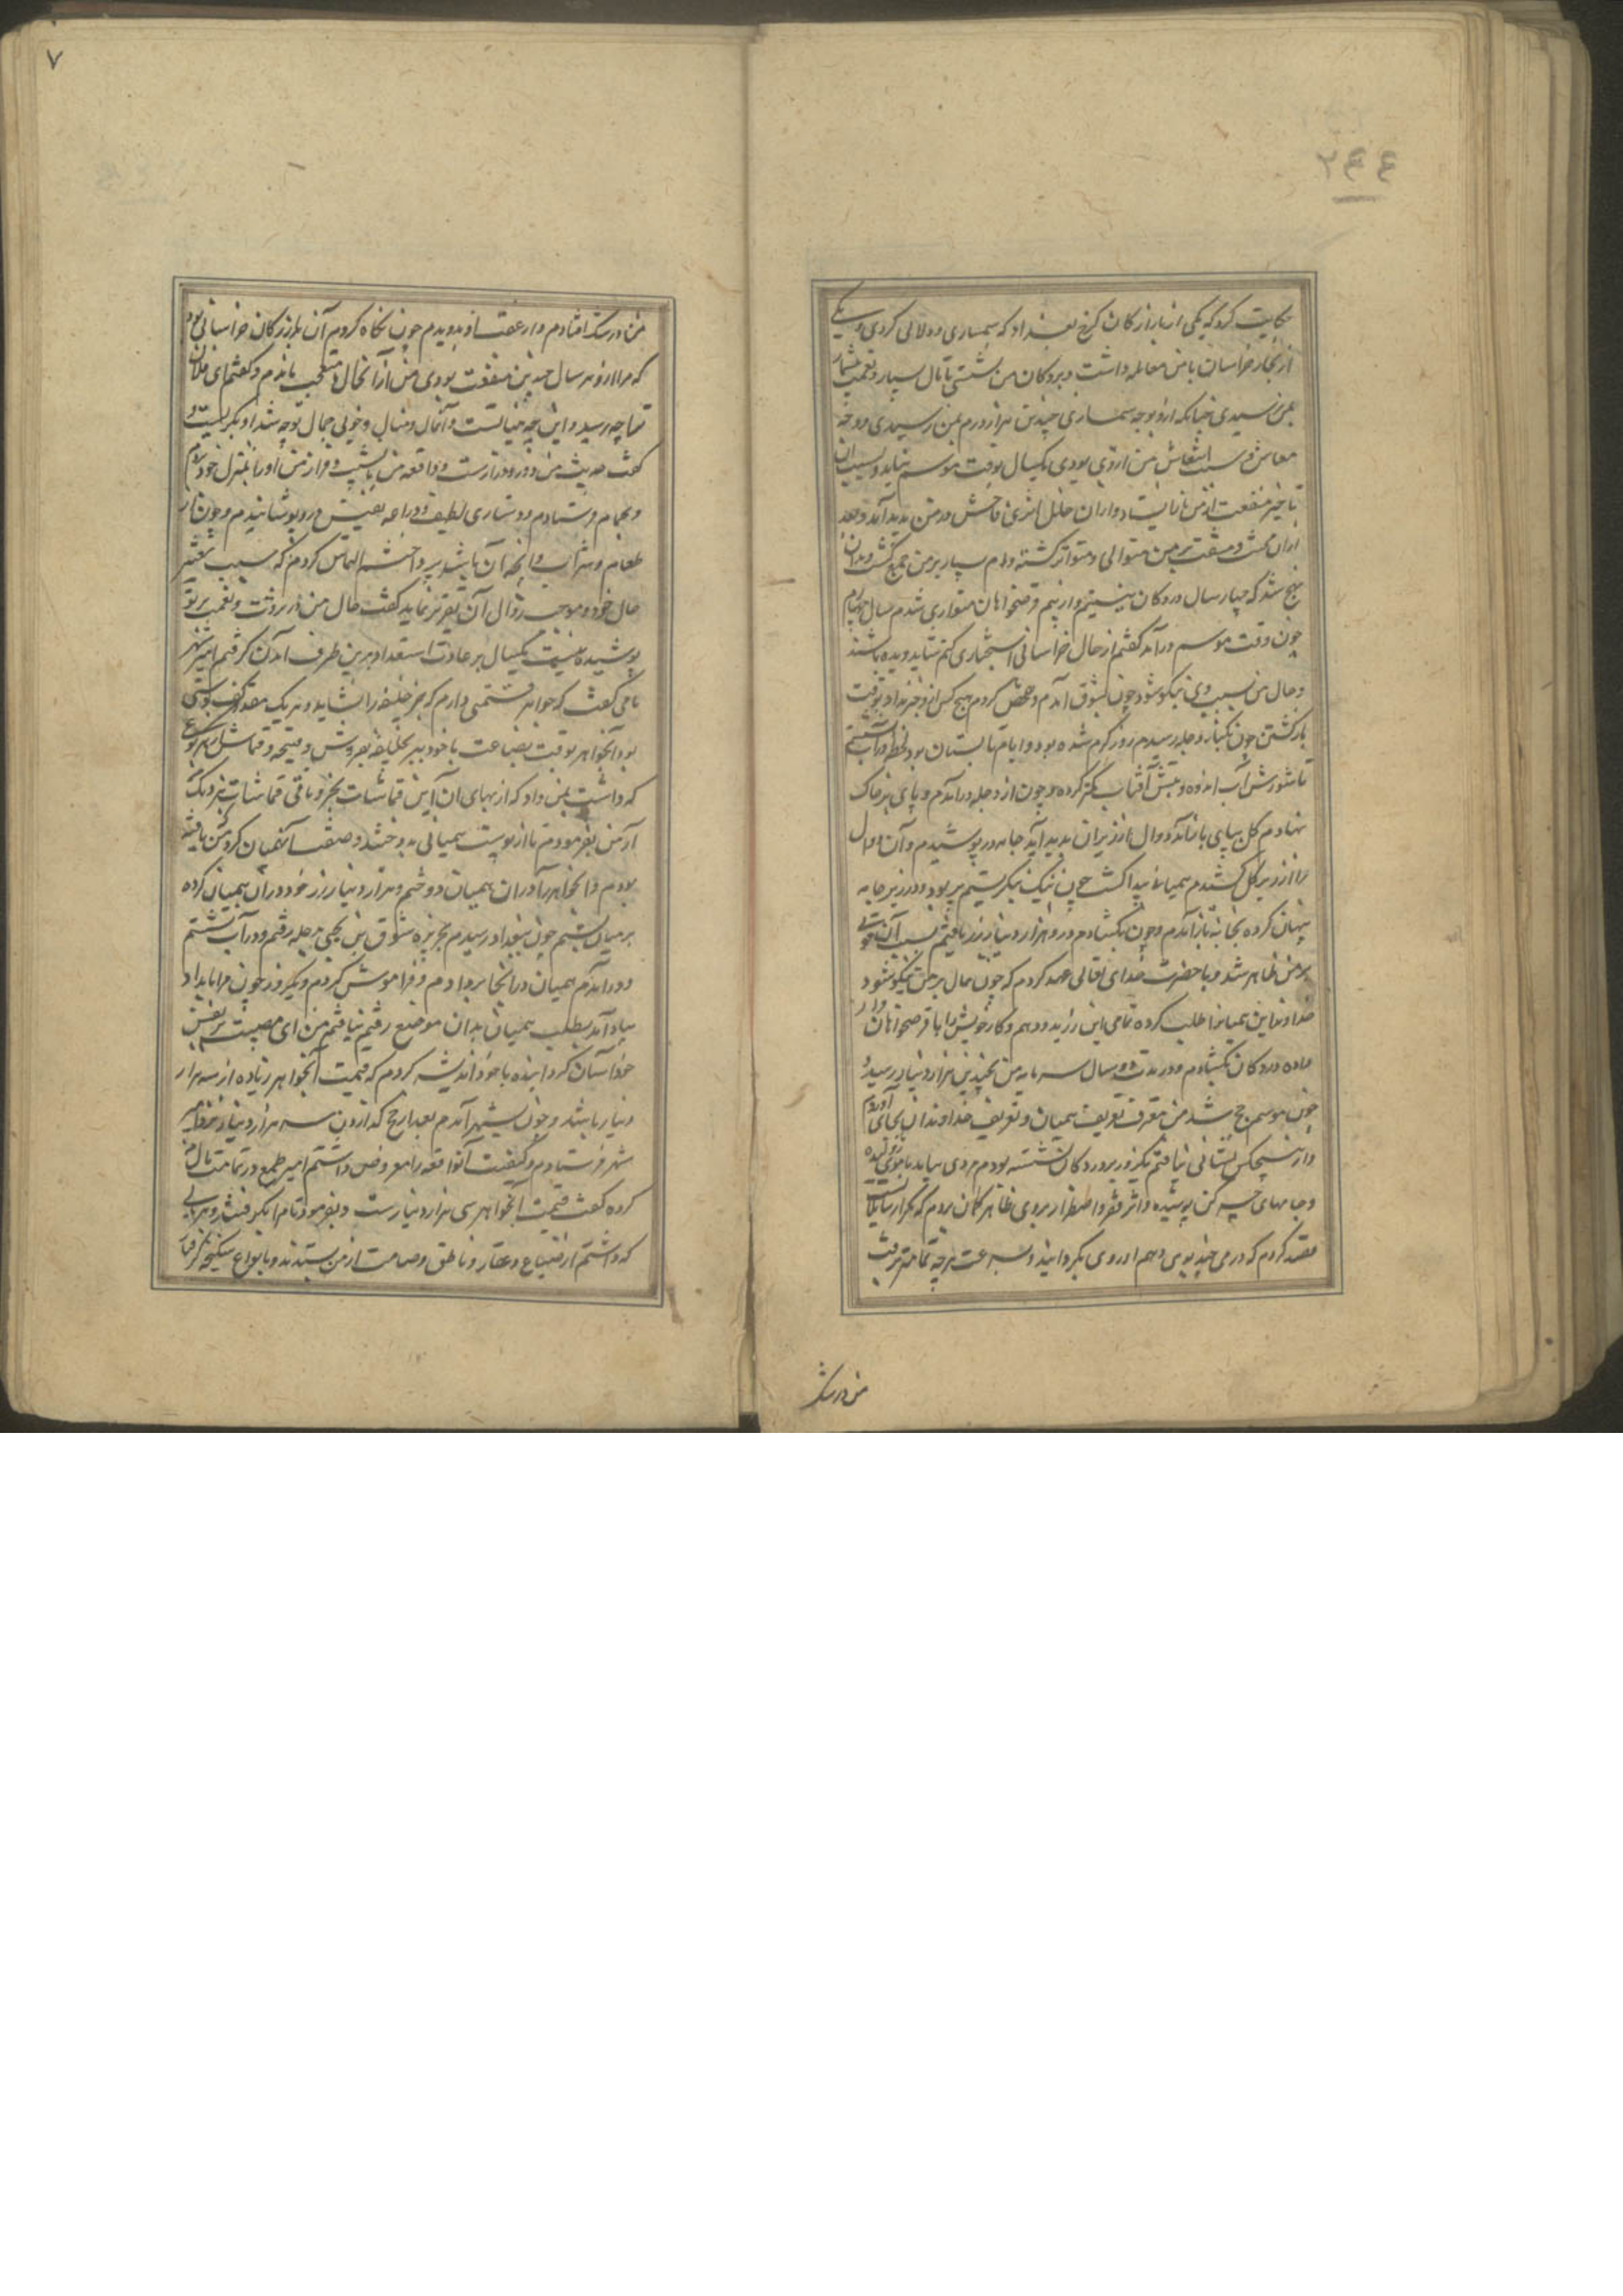 ۲۴۴
حکایت کرد که یکی از بازارکان کرخ بغداد که سمساری و دلالی کردی و یکی
از تجار خراسان با من معامله داشت و بر دکان من نشستی تا مال بسیار و نعمت بیشمار
بمن رسیدی چنانکه از وجه سمساری چندین هزار درم بمن رسیدی و وجه
معاش و سبب انتعاش من از وی بودی یکسال بوقت موسم نیامد و بسبب آن
تاخیر منفعت از من باز ایستاد و از آن خلل اثری فاحش در من پدید آمد و بعد
از آن محنت و مشقت بر من متوالی و متواتر کشته وام بسیار بر من جمع کشت و بدان
رنج شد که چهار سال در دکان ننشینم و از بیم قرضخواهان متواری شدم سال چهارم
چون وقت موسم درآمد کفتم از حال خراسانی استخباری کنم شاید دیده باشند
و حال من بسبب وی نیکو شود چون بسوق آمدم و فحص کردم هیچ کس از او خبر نداد و بوقت
بازکشتن چون بکنار دجله رسیدم روز کرم شده بود و ایام تابستان بود لحظه در آب نشستم
تا سورش آب اندوه و تپش آفتاب کمتر کرده و چون از دجله درآمدم و پای بر خاک
نهادم کل بپای باز آمد و دوال از زیر آن پدید آمد جامه در پوشیدم و آن دوال
را از زیر کل کشیدم همیانی پیدا کشت چون نیک نکریستم پر بود در زیر جامه
پنهان کرده بخانه باز آمدم و چون بکشادم در او هزار دینار زر یافتم بسبب آن قوتی
بر من ظاهر شد و با حضرت خدای تعالی عهد کردم که چون حال بر من نیکو شود
خداوند این همیانرا طلب کرده تمامی این زر بدو دهم و کار خویش را با قرضخواهان قرار
داده در دکان بکشادم و در مدت دو سال سرمایه من بچندین هزار دینار رسید و
چون موسم حج شد من معرف تعریف همیان و تعریف خداوندان بجای آوردم
و از هیچکس نشانی نیافتم یکروز بر در دکان نشسته بودم مردی بیامد با موی ژولیده
و جامهای چرکن پوشیده و اثر فقر و اضطرار بر وی ظاهر کمان بردم که مکر از سایلانست
قصد کردم که درمی چند بوی دهم او روی بکردانید و بسرعت هرچه تمامتر برفت
من در شک
۷
من در شک افتادم و از عقب او بدویدم چون نکاه کردم آن بازرکان خراسانی بود
که مرا از او هر سال چندین منفعت بودی من از آن حال متعجب ماندم و کفتم ای فلان
ترا چه رسید و این چه حالتست و آن مال و منال و خوبی جمال تو چه شد او بکریست و
کفت حدیث من دور و دراز است و واقعه من با شیب و فراز من او را بمنزل خود بردم
و بحمام فرستادم و دستاری لطیف و دراعه نفیس در او پوشانیدم و چون از
طعام و شراب و آنچه آن باشد پرداخته شد التماس کردم که سبب تغیر
حال خود و موجب زوال آن تقریر نماید کفت حال من در ثروت و نعمت بر تو
پوشیده نیست یکسال بر عادت استعداد بدین طرف آمدن کرفتم امیر شهر
بامن کفت که جواهر قیمتی دارم که جز خلیفه را نشاید و هر یک مقدار کف دستی
بود آنجواهر بوقت بضاعت با خود ببر بخلیفه بفروش و قیمت و قماش از هر نوع
که داشت بمن داد که از بهای آن این قماشات بخر و باقی قماشات نزدیک
آر من بفرمودم تا از پوست همیانی بدوختند و صفت آنهمیان کرد که من یافته
بودم و انجواهر را در آن همیان دوختم و هزار دینار زر خود در آن همیان کرده
بر میان بستم چون ببغداد رسیدم بجزیره سوق ابن یحیی بدجله رفتم و در آب نشستم
و در آمدم همیان در انجا بر نهادم و فراموش کردم و یکروز چون مرا بامداد
بیاد آمد بطلب همیان بدان موضع رفتم نیافتم من این مصیبت بر نفس
خود آسان کردانیده با خود اندیشه کردم که قیمت آنجواهر زیاده از سه هزار
دینار باشد و چون بشهر آمدم بعد از حج که از دون سه هزار دینار نزد امیر
شهر فرستادم و کیفیت آنواقعه را معروض داشتم امیر طمع در تمامت مال من
کرده کفت قیمت آنجواهر سی هزار دینار است و بفرمود تا مرا بکرفتند و هرچه
که داشتم از ضیاع و عقار و ناطق و صامت از من بستدند و بانواع شکنجه کرفتار